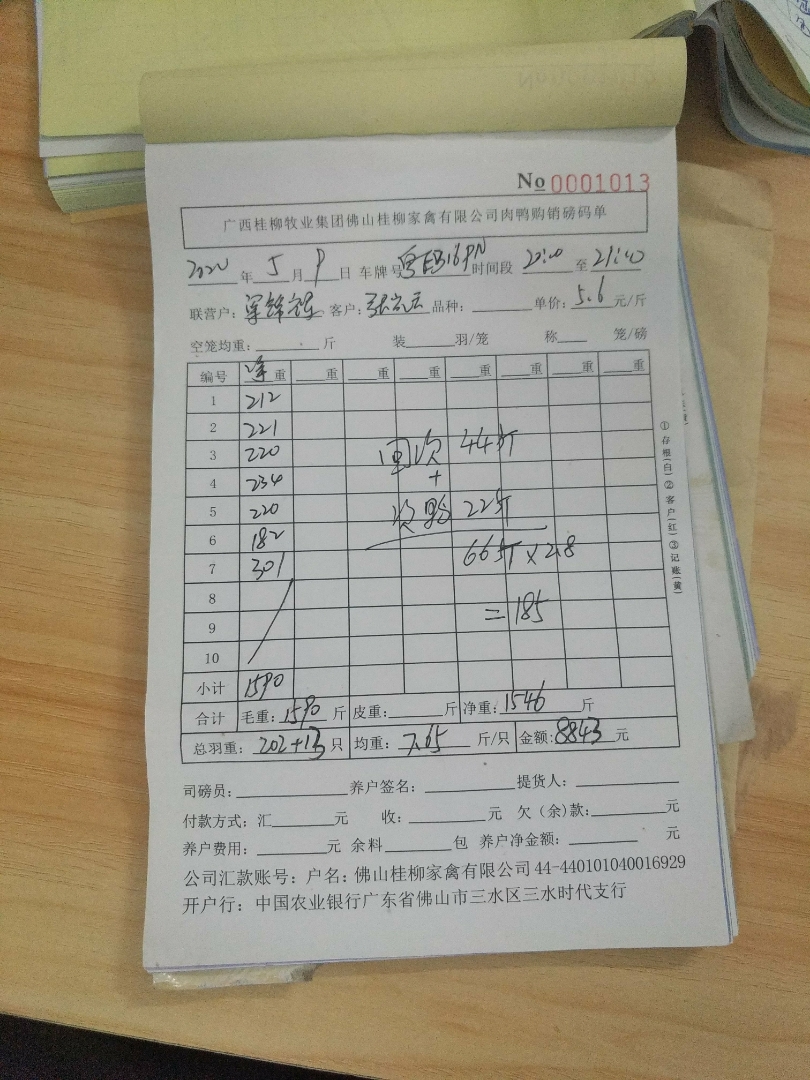 No 0001013
广西桂柳牧业集团佛山桂柳家禽有限公司肉鸭购销磅码单
2020 年 5 月 9 日 车牌号 时间段 20:00 至 21:40
联营户: 客户: 品种: 单价: 5.6 元/斤
空笼均重: 斤 装 羽/笼 称 笼/磅
编号 净重 重 重 重 重 重 重 重
1 212
2 221
3 220 回次 44斤
4 234 +
5 220 次鸭 22斤
6 182 66斤×2.8
7 301
8
9 =185
10
小计 1590
合计 毛重: 1590 斤 皮重: 斤 净重: 1546 斤
总羽重: 202+13 只 均重: 7.65 斤/只 金额: 8843 元
司磅员: 养户签名: 提货人:
付款方式: 汇 元 收: 元 欠(余)款: 元
养户费用: 元 余料 包 养户净金额: 元
公司汇款账号: 户名: 佛山桂柳家禽有限公司 44-440101040016929
开户行: 中国农业银行广东省佛山市三水区三水时代支行
①存根(白)②客户(红)③记账(黄)